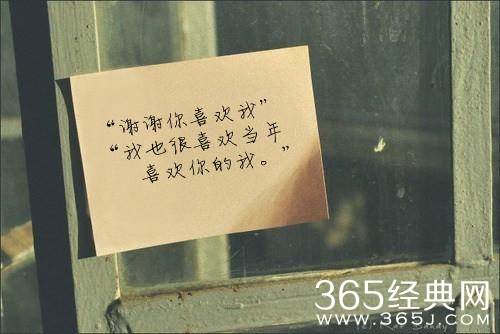 “谢谢你喜欢我”
“我也很喜欢当年
喜欢你的我。”
365经典网
www.365J.com